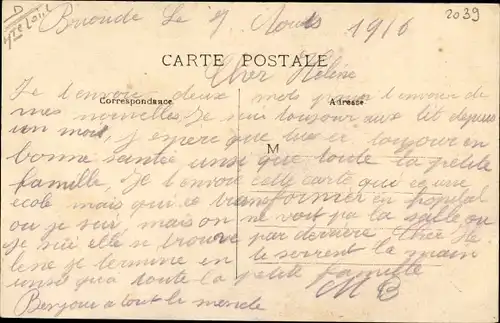 D
Hte Loire
Brioude Le 7 Aouts 1916
2039
CARTE POSTALE
Cher Hélène
Correspondance
Adresse
Je t'envoie deux mots pour t'envoier de
mes nouvelles Je suis toujour aux lit depuis
un mois, J'espere que tu es toujour en
M
bonne santée insi que toute la petite
famille, Je t'envoi cette carte qui et une
ecole mais qui et transformer en hopital
ou je suis, mais on ne voit pa la salle ou
Je suis elle se trouve par derriere Chée Hé-
lene je termine en te serrent la main
insi qua toute la petite famille
Bonjour a tout le monde
M B